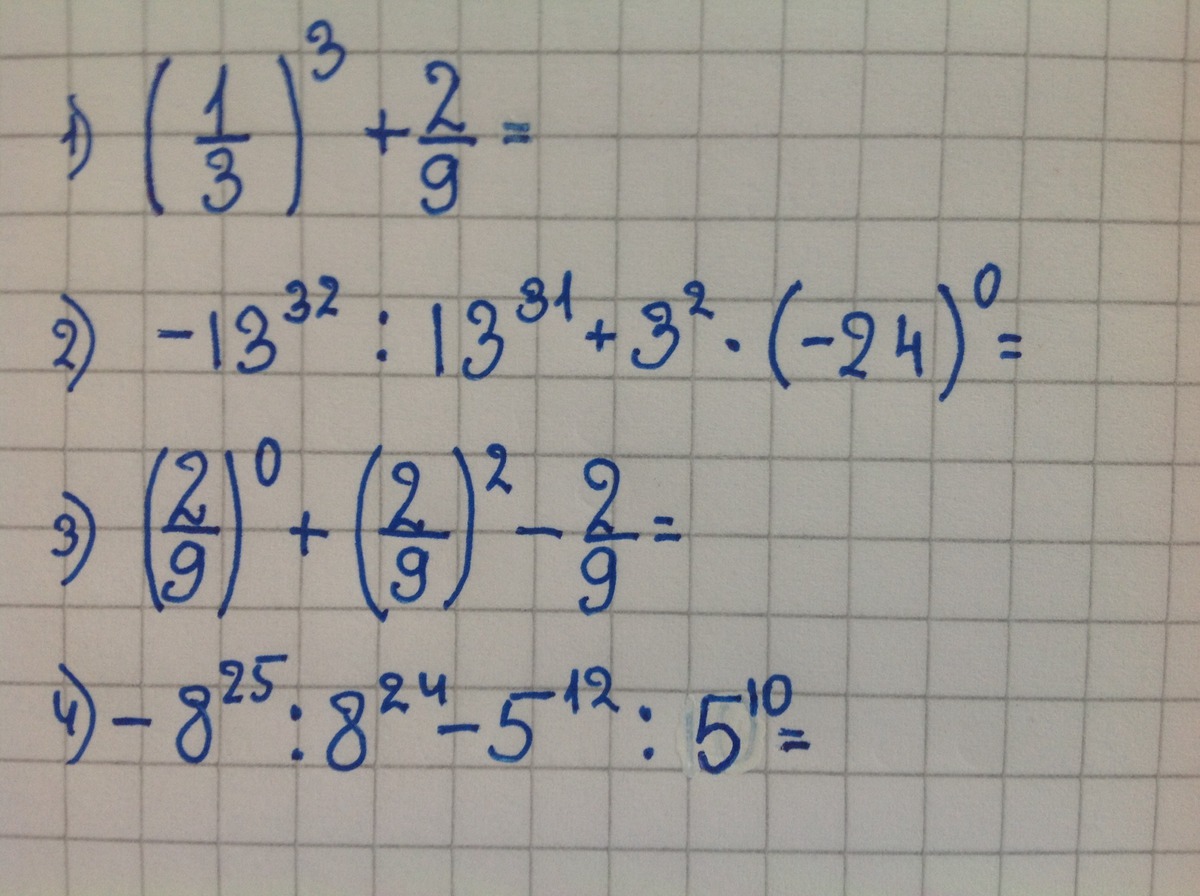 1) (1/3)³ + 2/9 =
2) -13³² : 13³¹ + 3² · (-24)⁰ =
3) (2/9)⁰ + (2/9)² - 2/9 =
4) -8²⁵ : 8²⁴ - 5¹² : 5¹⁰ =